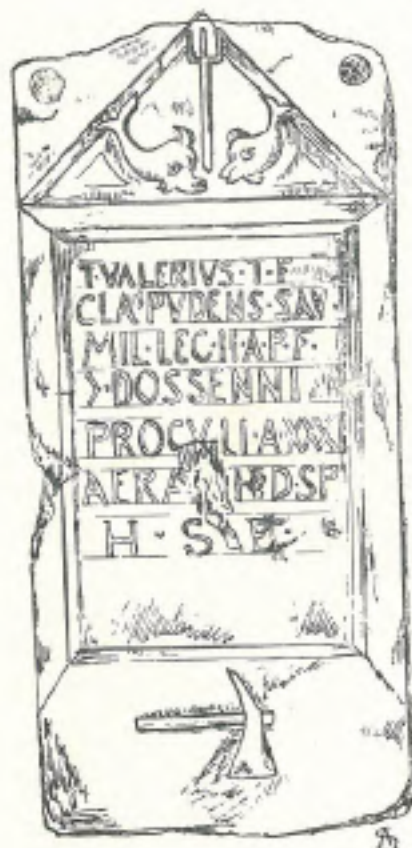 T·VALERIVS·T·F
CLA·PVDENS·SAV
MIL·LEG·II·A·P·F·
DOSSENNI
PROCVLI·A·XXX
AERA H·D·SP
H·S·E·